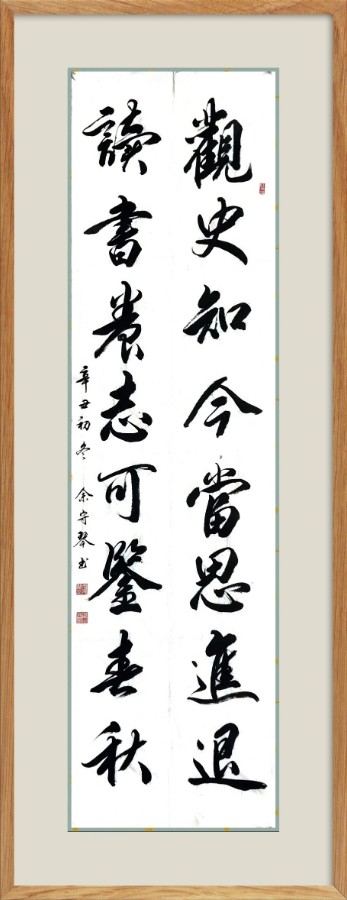 觀史知今當思進退
讀書養志可鑒春秋
辛丑初冬 余守琴书